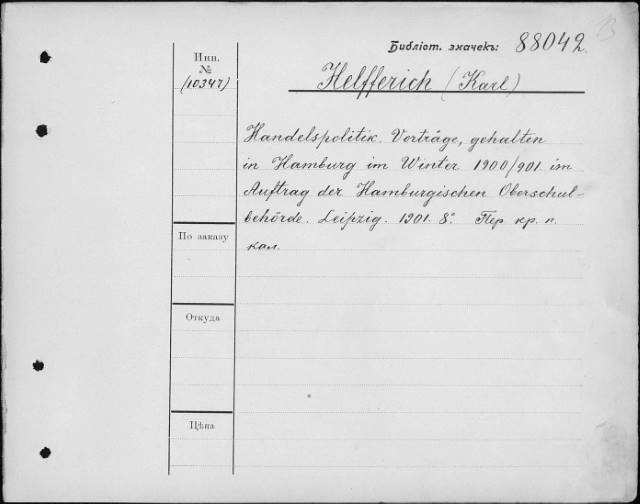 Библіот. значекъ: 88042.
Инв.
№
(10347)
Helfferich (Karl)
Handelspolitik. Vorträge, gehalten
in Hamburg im Winter 1900/901 im
Auftrag der Hamburgischen Oberschul-
behörde. Leipzig. 1901. 8º. Пер кр. п.
кал.
По заказу
Откуда
Цѣна